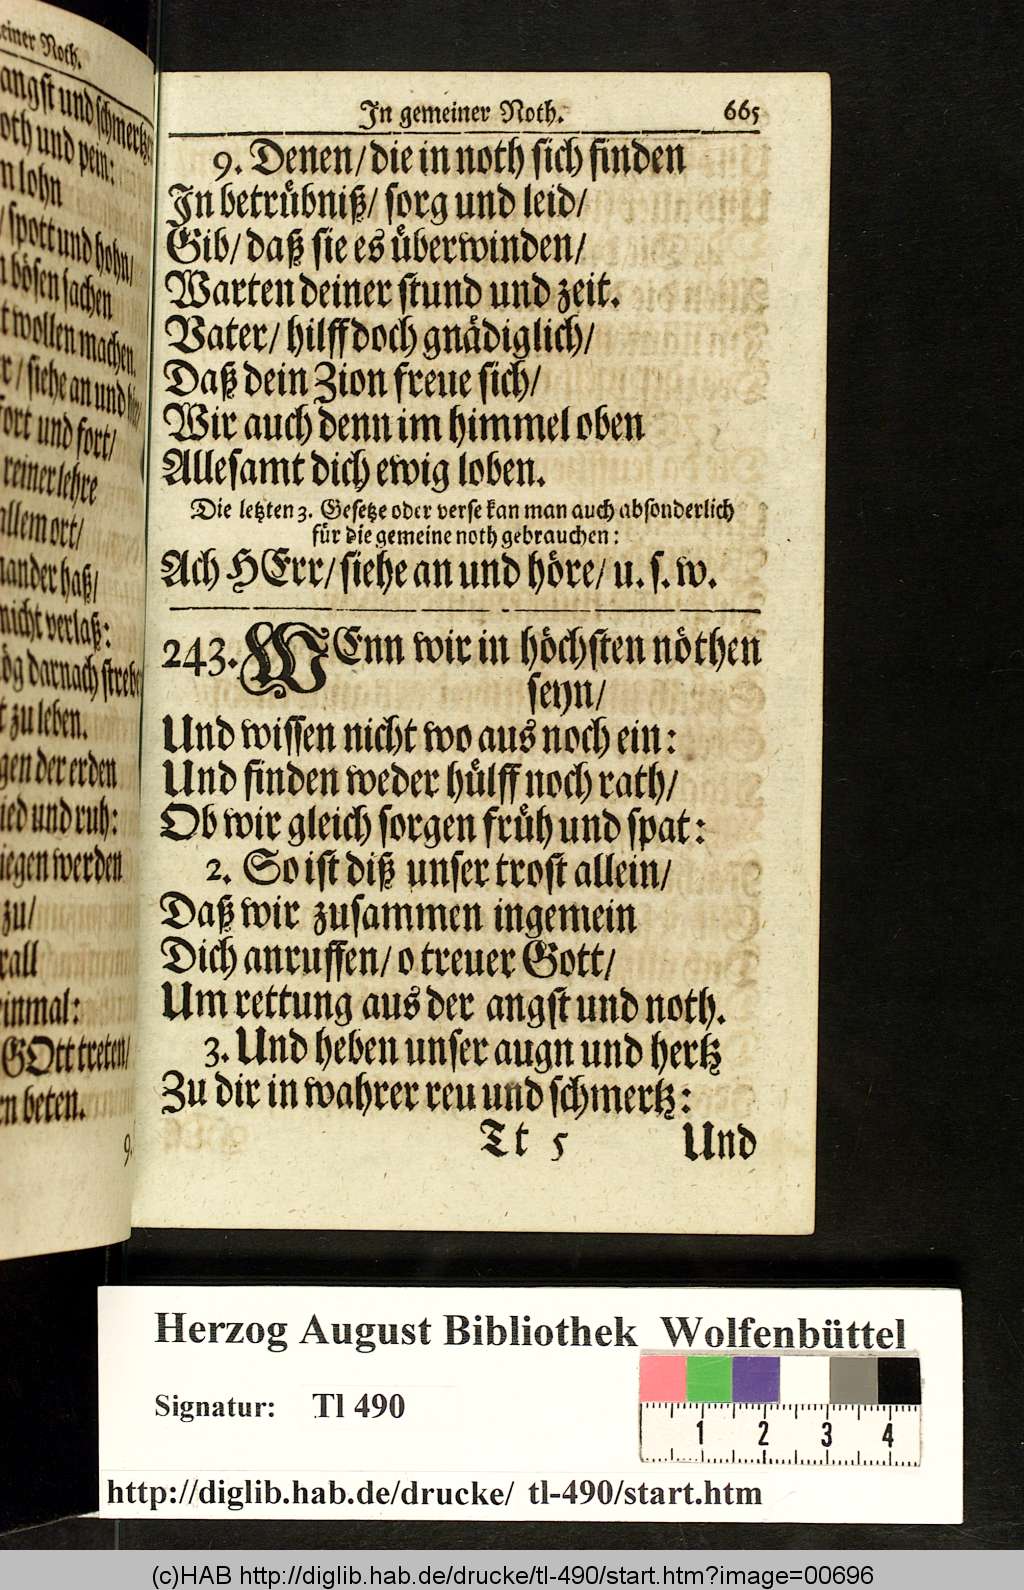 einer Noth.
angst und schmertzen
oth und pein:
n lohn
/ spott und hohn/
n bösen sachen
t wollen machen.
r / siehe an und
fort und fort/
reiner lehre
allem ort/
nander haß/
nicht verlaß:
ög darnach strebe
t zu leben.
gen der erden
ied und ruh:
iegen werden
zu/
rall
inmal:
GOtt treten/
en beten.
9.
In gemeiner Noth. 665
9. Denen/ die in noth sich finden
In betrübniß/ sorg und leid/
Gib/ daß sie es überwinden/
Warten deiner stund und zeit.
Vater/ hilff doch gnädiglich/
Daß dein Zion freue sich/
Wir auch denn im himmel oben
Allesamt dich ewig loben.
Die letzten 3. Gesetze oder verse kan man auch absonderlich
für die gemeine noth gebrauchen:
Ach HErr/ siehe an und höre/ u. s. w.
243. WEnn wir in höchsten nöthen
seyn/
Und wissen nicht wo aus noch ein:
Und finden weder hülff noch rath/
Ob wir gleich sorgen früh und spat:
2. So ist diß unser trost allein/
Daß wir zusammen ingemein
Dich anruffen/ o treuer Gott/
Um rettung aus der angst und noth.
3. Und heben unser augn und hertz
Zu dir in wahrer reu und schmertz:
Tt 5 Und
Herzog August Bibliothek Wolfenbüttel
Signatur: Tl 490
1 2 3 4
http://diglib.hab.de/drucke/ tl-490/start.htm
(c)HAB http://diglib.hab.de/drucke/tl-490/start.htm?image=00696